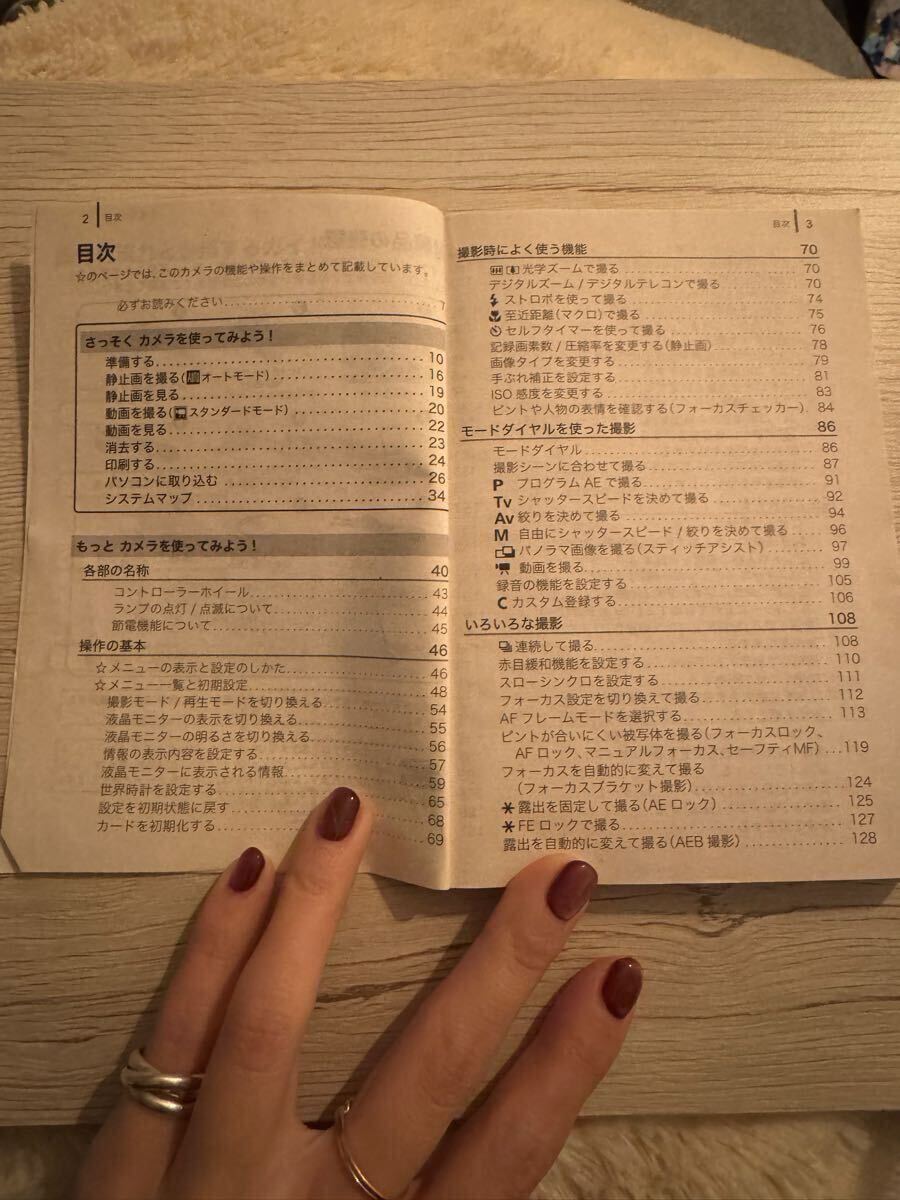 2 目次
目次
☆のページでは、このカメラの機能や操作をまとめて記載しています。
必ずお読みください 7
さっそく カメラを使ってみよう！
準備する 10
静止画を撮る(オートモード) 16
静止画を見る 19
動画を撮る(スタンダードモード) 20
動画を見る 22
消去する 23
印刷する 24
パソコンに取り込む 26
システムマップ 34
もっと カメラを使ってみよう！
各部の名称 40
コントローラーホイール 43
ランプの点灯 / 点滅について 44
節電機能について 45
操作の基本 46
☆メニューの表示と設定のしかた 46
☆メニュー一覧と初期設定 48
撮影モード / 再生モードを切り換える 54
液晶モニターの表示を切り換える 55
液晶モニターの明るさを切り換える 56
情報の表示内容を設定する 57
液晶モニターに表示される情報 59
世界時計を設定する 65
設定を初期状態に戻す 68
カードを初期化する 69
目次 3
撮影時によく使う機能 70
光学ズームで撮る 70
デジタルズーム / デジタルテレコンで撮る 70
ストロボを使って撮る 74
至近距離(マクロ)で撮る 75
セルフタイマーを使って撮る 76
記録画素数 / 圧縮率を変更する(静止画) 78
画像タイプを変更する 79
手ぶれ補正を設定する 81
ISO 感度を変更する 83
ピントや人物の表情を確認する(フォーカスチェッカー) 84
モードダイヤルを使った撮影 86
モードダイヤル 86
撮影シーンに合わせて撮る 87
P プログラム AE で撮る 91
Tv シャッタースピードを決めて撮る 92
Av 絞りを決めて撮る 94
M 自由にシャッタースピード / 絞りを決めて撮る 96
パノラマ画像を撮る(スティッチアシスト) 97
動画を撮る 99
録音の機能を設定する 105
C カスタム登録する 106
いろいろな撮影 108
連続して撮る 108
赤目緩和機能を設定する 110
スローシンクロを設定する 111
フォーカス設定を切り換えて撮る 112
AF フレームモードを選択する 113
ピントが合いにくい被写体を撮る(フォーカスロック、
AF ロック、マニュアルフォーカス、セーフティMF) 119
フォーカスを自動的に変えて撮る
(フォーカスブラケット撮影) 124
露出を固定して撮る(AE ロック) 125
FE ロックで撮る 127
露出を自動的に変えて撮る(AEB 撮影) 128